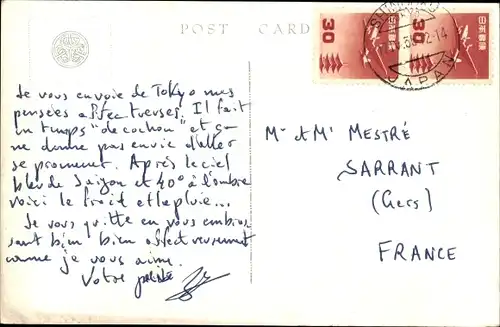 POST CARD
30 日本郵便
30 日本郵便
JAPAN
Je vous envoie de Tokyo mes
pensées affectueuses, Il fait
un temps "de cochon" et ça
ne donne pas envie d'aller
se promener. Après le ciel
bleu de Saïgon et 40° à l'ombre
voici le froid et la pluie...
Je vous quitte en vous embras
sant bien bien affectueusement
comme je vous aime.
Votre
Mr et Me MESTRÉ
SARRANT
(Gers)
FRANCE